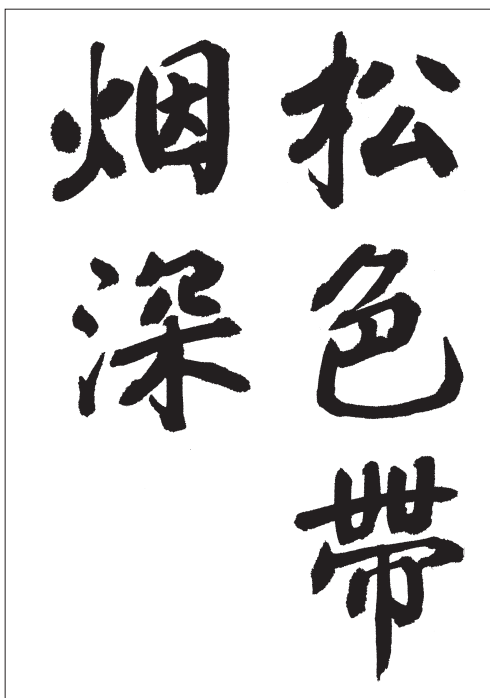 松色帶
烟深